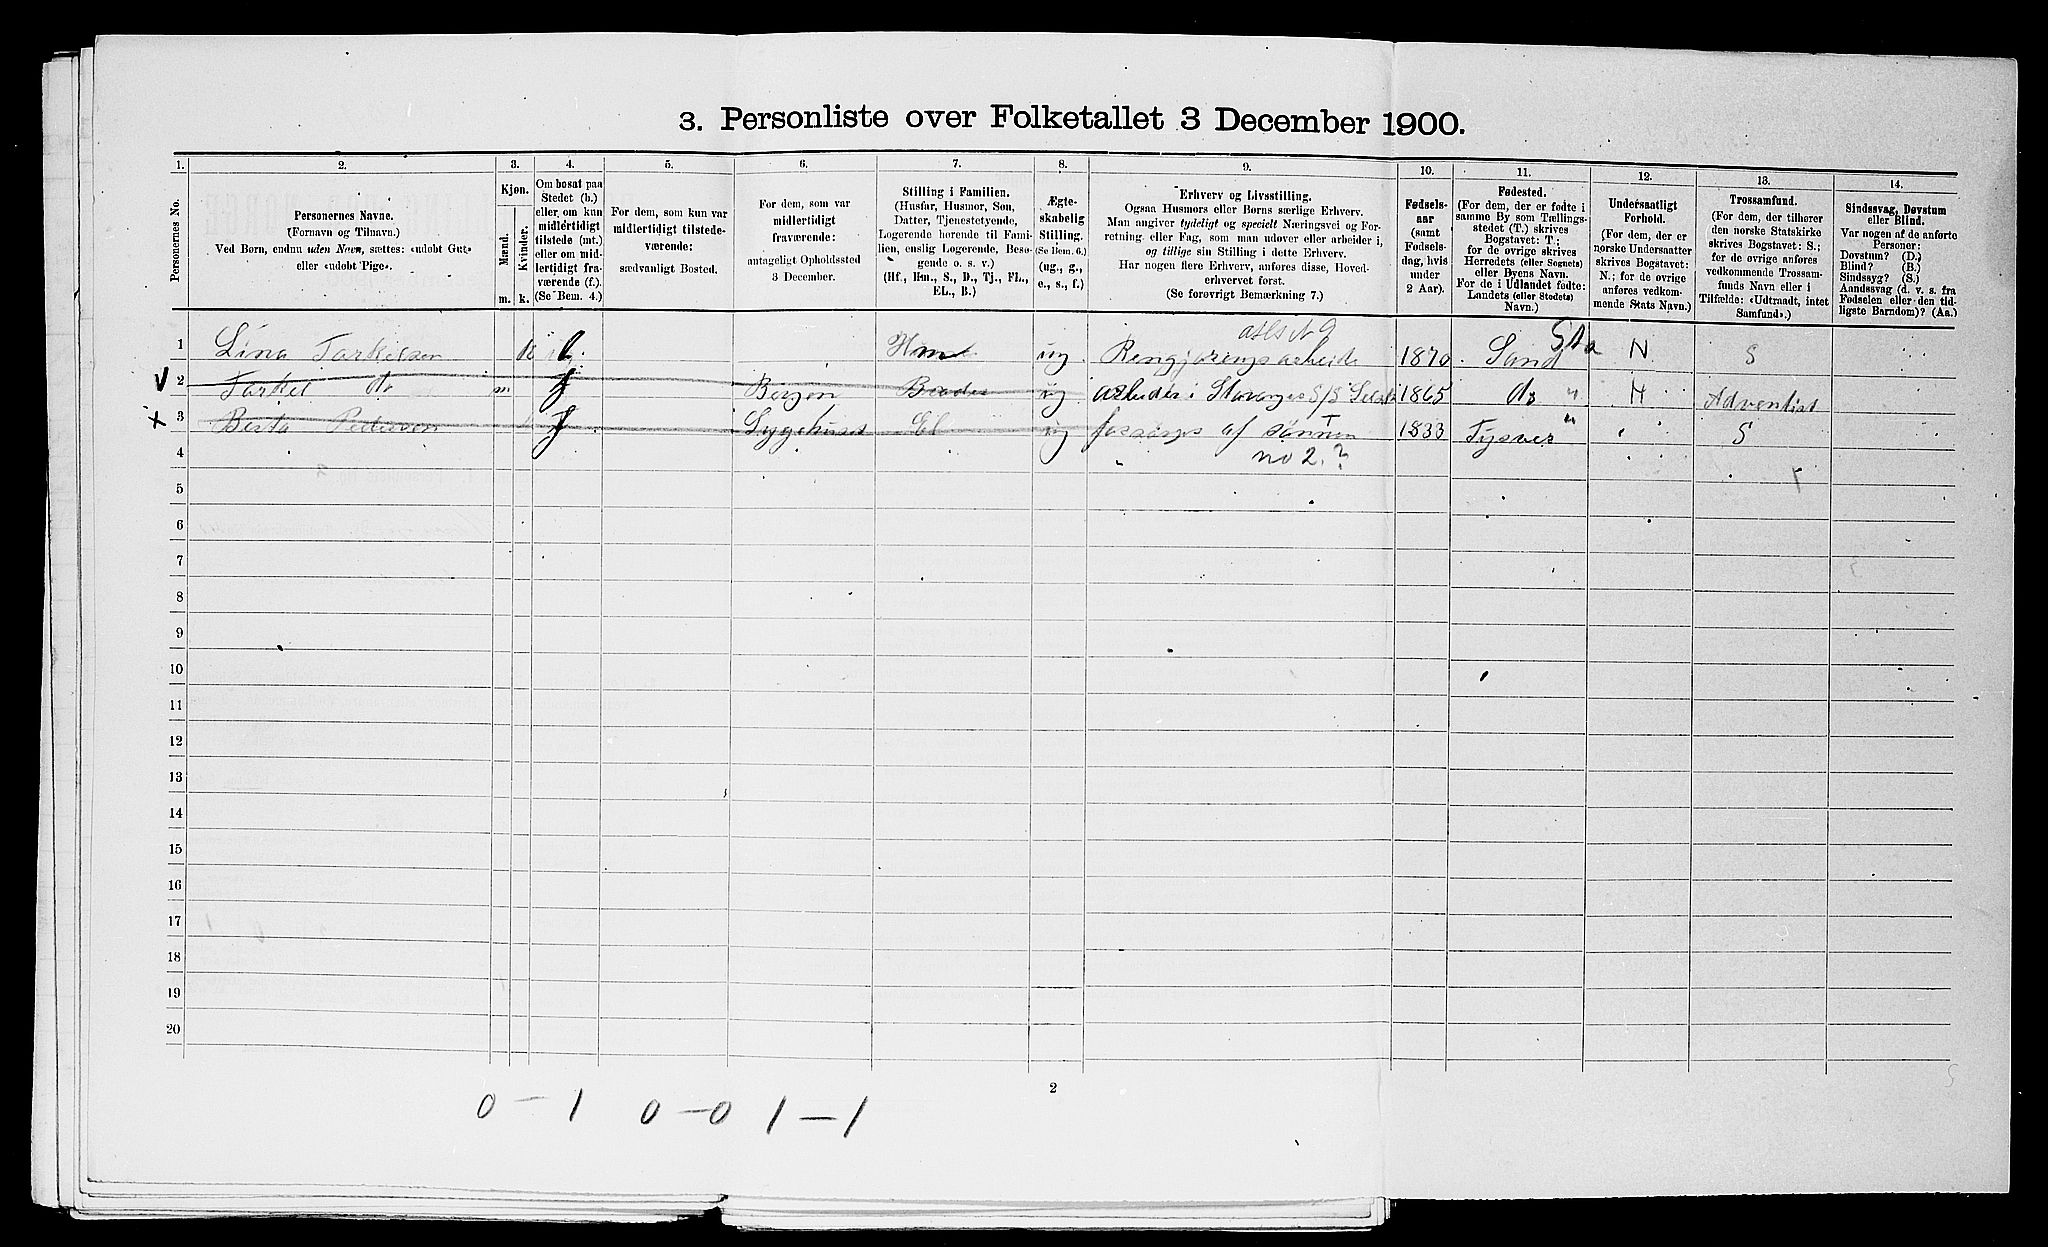 3. Personliste over Folketallet 3 December 1900.
1. 2. 3. 4. 5. 6. 7. 8. 9. 10. 11. 12. 13. 14.
Personernes No.
Personernes Navne.
(Fornavn og Tilnavn.)
Ved Børn, endnu uden Navn, sættes: «udøbt Gut»
eller «udøbt Pige».
Kjøn.
Mænd.
Kvinder.
m. k.
Om bosat paa
Stedet (b.)
eller om kun
midlertidigt
tilstede (mt.)
eller om mid-
lertidigt fra-
værende (f.).
(Se Bem. 4.)
For dem, som kun var
midlertidigt tilstede-
værende:
sædvanligt Bosted.
For dem, som var
midlertidigt
fraværende:
antageligt Opholdssted
3 December.
Stilling i Familien.
(Husfar, Husmor, Søn,
Datter, Tjenestetyende,
Logerende hørende til Fami-
lien, enslig Logerende, Besø-
gende o. s. v.)
(Hf., Hm., S., D., Tj., FL.,
EL., B.)
Ægte-
skabelig
Stilling.
(Se Bem. 6.)
(ug., g.,
e., s., f.)
Erhverv og Livsstilling.
Ogsaa Husmors eller Børns særlige Erhverv.
Man angiver tydeligt og specielt Næringsvei og For-
retning eller Fag, som man udøver eller arbeider i,
og tillige sin Stilling i dette Erhverv.
Har nogen flere Erhverv, anføres disse, Hoved-
erhvervet først.
(Se forøvrigt Bemærkning 7.)
Fødsels-
aar
(samt
Fødsels-
dag, hvis
under
2 Aar).
Fødested.
(For dem, der er fødte i
samme By som Tællings-
stedet (T.) skrives
Bogstavet: T.;
for de øvrige skrives
Herredets (eller Sognets)
eller Byens Navn.
For de i Udlandet fødte:
Landets (eller Stedets)
Navn.)
Undersaatligt
Forhold.
(For dem, der er
norske Undersaatter
skrives Bogstavet:
N.; for de øvrige
anføres vedkom-
mende Stats Navn.)
Trossamfund.
(For dem, der tilhører
den norske Statskirke
skrives Bogstavet: S.;
for de øvrige anføres
vedkommende Trossam-
funds Navn eller i
Tilfælde: «Udtraadt, intet
Samfund».)
Sindssvag, Døvstum
eller Blind.
Var nogen af de anførte
Personer:
Døvstum? (D.)
Blind? (B.)
Sindssyg? (S.)
Aandssvag (d. v. s. fra
Fødselen eller den tid-
ligste Barndom)? (Aa.)
1 Lina Torkelsen k Hm ug Rengjøringsarbeide 1870 Sand N S
2 Torkel do m f Bergen Broder ug arbeider i Stavanger S/S Selsk 1865 do " N Adventist
3 Berta Pedersen f Sygehuset El ug forsørges af sønnen 1833 Tysvær " S
no 2.?
4
5
6
7
8
9
10
11
12
13
14
15
16
17
18
19
20
2
0 — 1 0 — 0 1 — 1